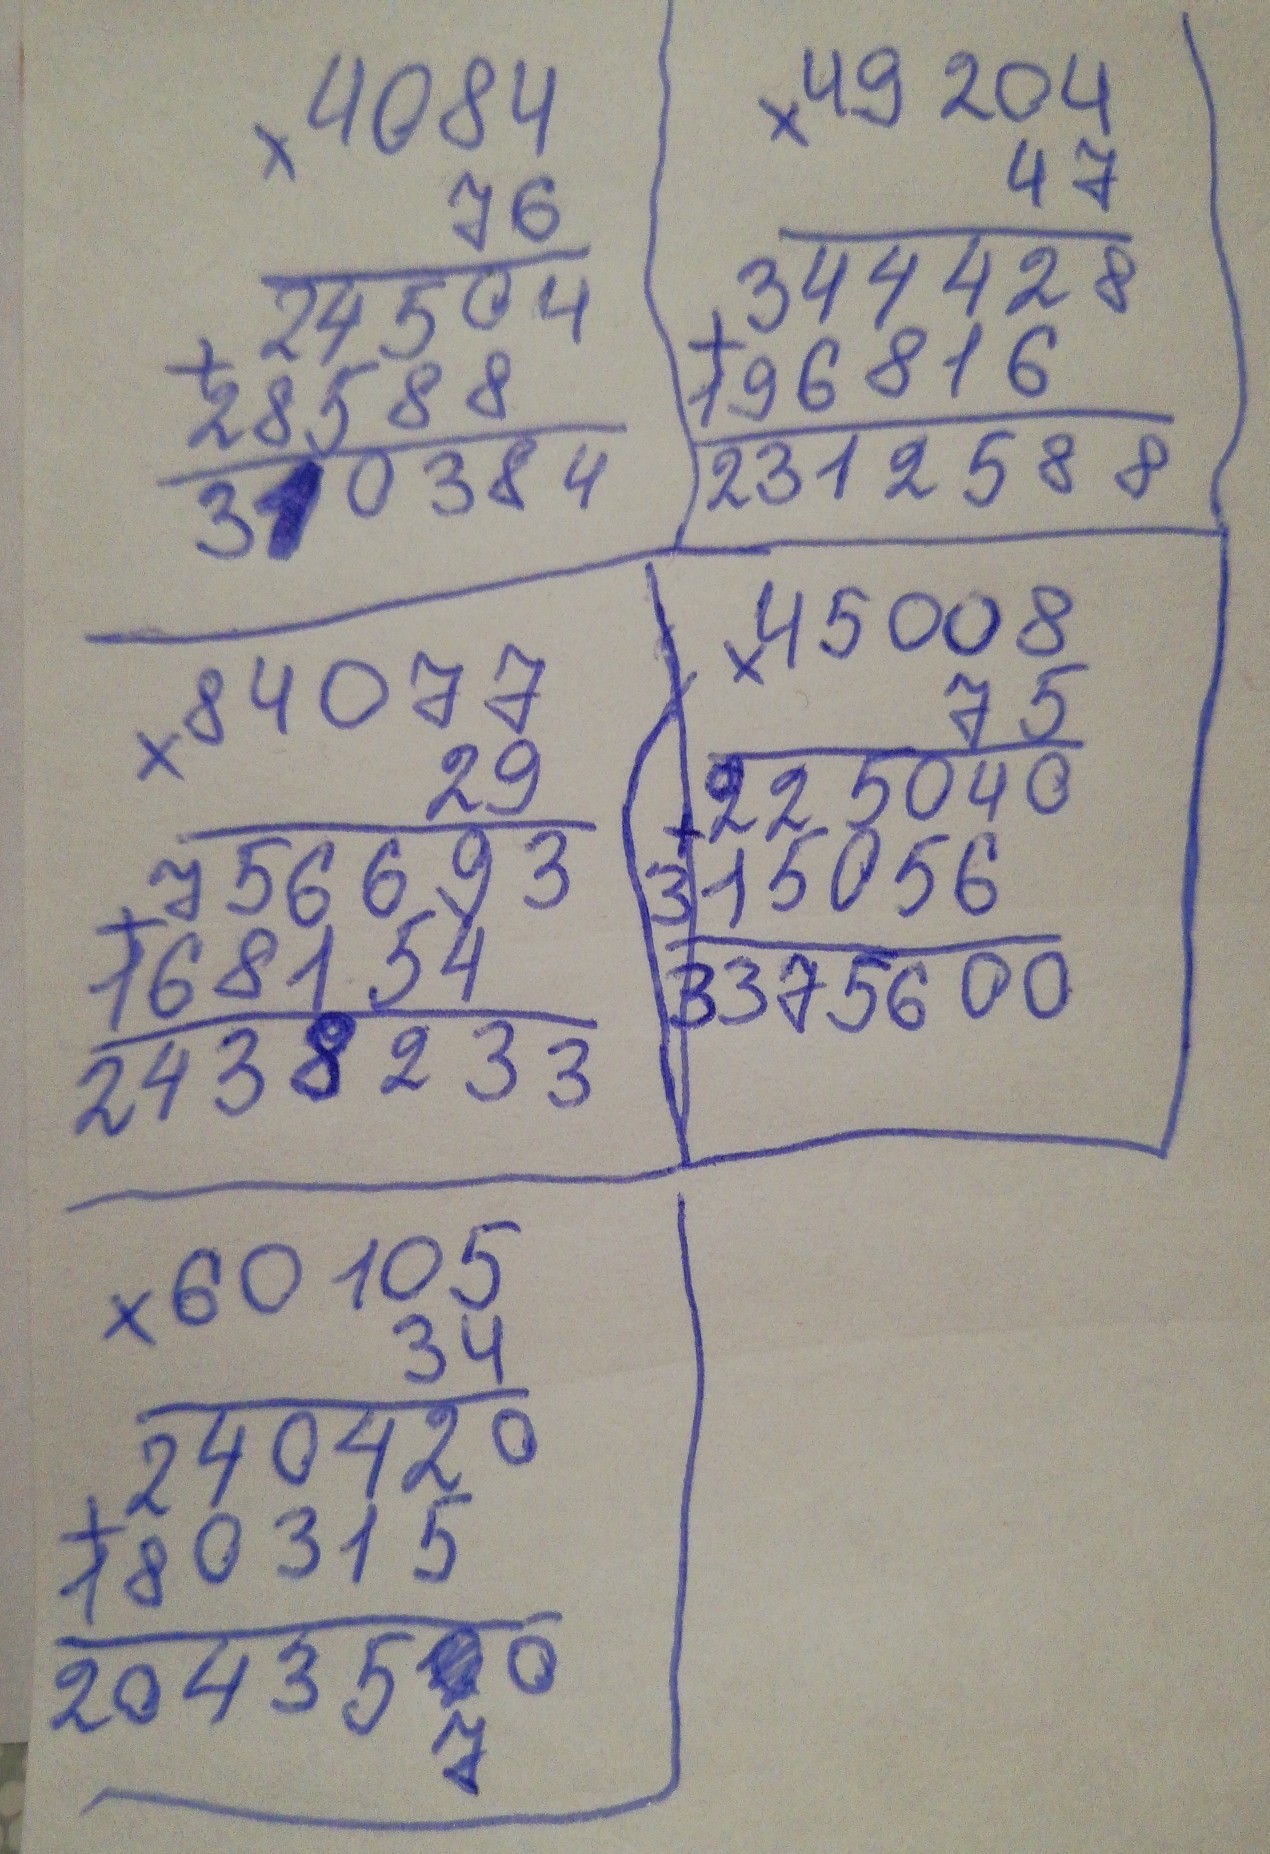 ×4084
76
24504
+
28588
310384
×49204
47
344428
+
196816
2312588
×84077
29
756693
+
168154
2438233
×45008
75
225040
+
315056
3375600
×60105
34
240420
+
180315
20435 0
7